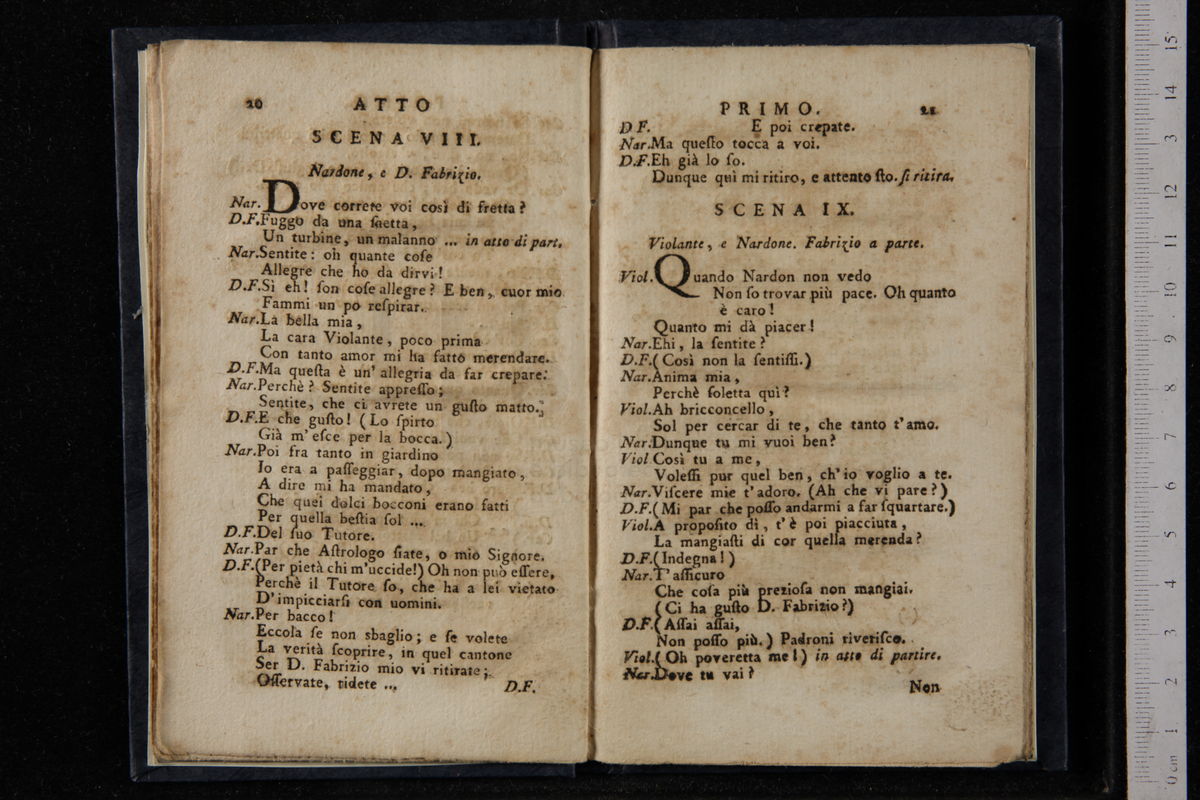 20 ATTO
SCENA VIII.
Nardone, e D. Fabrizio.
Nar. Dove correte voi così di fretta?
D.F. Fuggo da una ſaetta,
Un turbine, un malanno ... in atto di part.
Nar. Sentite: oh quante coſe
Allegre che ho da dirvi!
D.F. Sì eh! ſon coſe allegre? E ben, cuor mio
Fammi un po reſpirar.
Nar. La bella mia,
La cara Violante, poco prima
Con tanto amor mi ha fatto merendare.
D.F. Ma queſta è un' allegria da far crepare.
Nar. Perchè? Sentite appreſſo;
Sentite, che ci avrete un guſto matto.
D.F. E che guſto! (Lo ſpirto
Già m'eſce per la bocca.)
Nar. Poi fra tanto in giardino
Io era a paſſeggiar, dopo mangiato,
A dire mi ha mandato,
Che quei dolci bocconi erano fatti
Per quella beſtia ſol ...
D.F. Del ſuo Tutore.
Nar. Par che Aſtrologo ſiate, o mio Signore.
D.F. (Per pietà chi m'uccide!) Oh non può eſſere,
Perchè il Tutore ſo, che ha a lei vietato
D'impicciarſi con uomini.
Nar. Per bacco!
Eccola ſe non sbaglio; e ſe volete
La verità ſcoprire, in quel cantone
Ser D. Fabrizio mio vi ritirate;
Oſſervate, ridete ...
D.F.
PRIMO. 21
D F. E poi crepate.
Nar. Ma queſto tocca a voi.
D.F. Eh già lo ſo.
Dunque quì mi ritiro, e attento ſto. ſi ritira.
SCENA IX.
Violante, e Nardone. Fabrizio a parte.
Viol. Quando Nardon non vedo
Non ſo trovar più pace. Oh quanto
è caro!
Quanto mi dà piacer!
Nar. Ehi, la ſentite?
D.F. (Così non la ſentiſſi.)
Nar. Anima mia,
Perchè ſoletta quì?
Viol. Ah bricconcello,
Sol per cercar di te, che tanto t'amo.
Nar. Dunque tu mi vuoi ben?
Viol Così tu a me,
Voleſſi pur quel ben, ch'io voglio a te.
Nar. Viſcere mie t'adoro. (Ah che vi pare?)
D.F. (Mi par che poſſo andarmi a far ſquartare.)
Viol. A propoſito dì, t'è poi piacciuta,
La mangiaſti di cor quella merenda?
D.F. (Indegna!)
Nar. T'aſſicuro
Che coſa più prezioſa non mangiai.
(Ci ha guſto D. Fabrizio?)
D.F. (Aſſai aſſai,
Non poſſo più.) Padroni riveriſco.
Viol. (Oh poveretta me!) in atto di partire.
Nar. Dove tu vai?
Non
15
14
13
12
11
10
9
8
7
6
5
4
3
2
1
0 cm